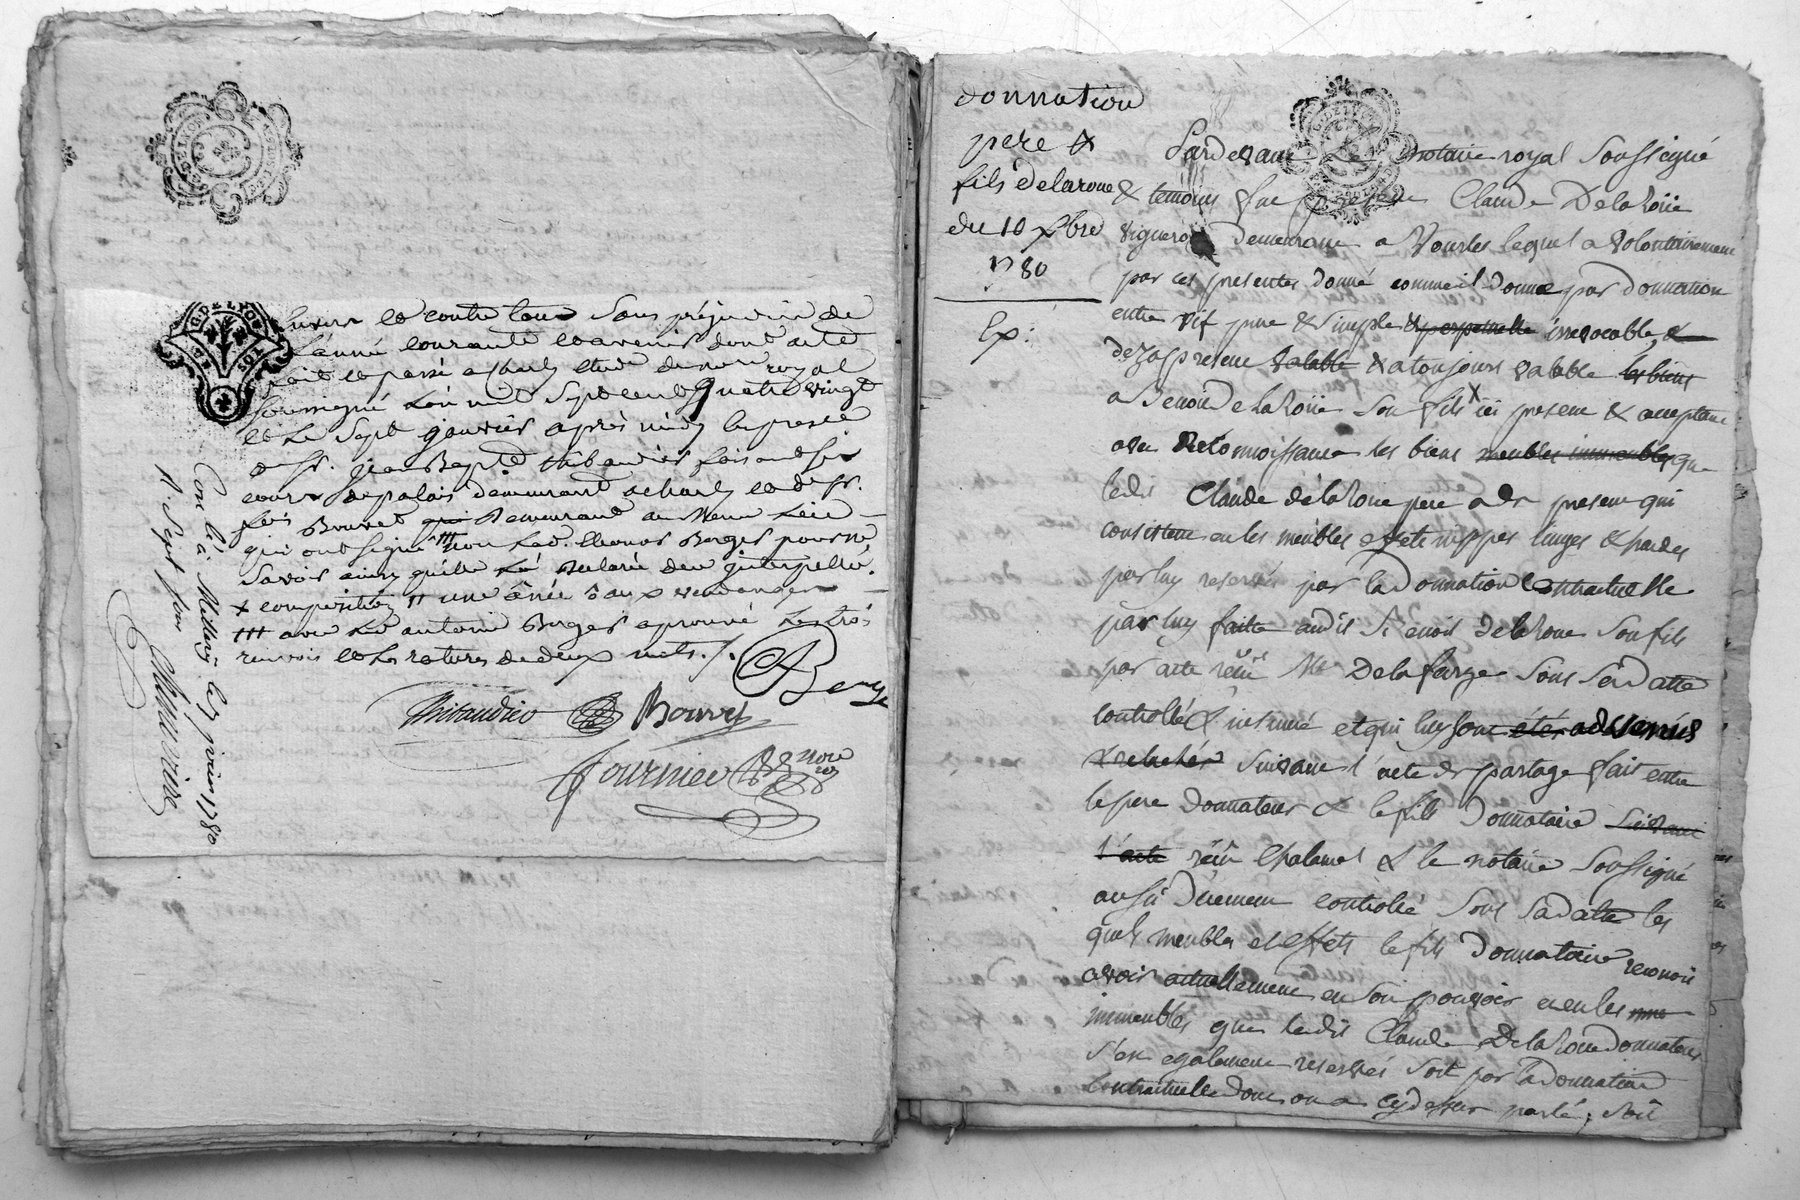 et contre tous sans préjudice de
l'année courante et avenir dont acte
fait et passé a Charly etude de no.re royal
soussigné L'an mil Sept cent quatre vingt
et Le Sept janvier après midy En presence
de Sr. Jean Bapt.e thibaudier
cour de palais demeurant a charly et de Sr.
Bouvet qui Demeurant au Meme Lieu
qui ont signé non Led. Berger pour ne
Savoir ainsy quelle La Declaré de ce interpellé.
x composition # une anée vendanger
avec Led antoine Berger aprouvé Les trois
renvois et Les ratures de deux mots ./.
A Berger
Thibaudier Bouvet
Fournier no.re
Con.lé à Millery le 7 janvier 1780
R. Sept sous
donnation
pere &
fils delaroue
du 10 xbre
1780
Ex:
Pardevant Le notaire royal Soussigné
& temoins fut present Claude Delaroüe
vigneron demeurant a Vourles lequel a volontairement
par ces presentes donné comme il donne par donnation
entre vif pure & simple & perpetuelle irrevocable &
dezapresent valable & a toujours valable les biens
a Benoit Delaroüe Son fils x ici present & acceptant
avec Reconnoissance les biens meubles immeubles que
ledit Claude delaroue pere a de present qui
consistent en les meubles effets nippes linges & hardes
par luy reservés par la Donnation Contractuelle
par luy faite audit Benoit Delaroue Son fils
par acte reçu Me Delafarge Sous Sa datte
controllé & insinué et qui luy sont étés advenus
& relachés Suivant l'acte de partage fait entre
le pere Donnateur & le fils Donnataire Suivant
l'acte reçu Chalamel & le notaire Soussigné
aussi Duement controllé Sous Sa datte les
quels meubles et effets le fils Donnataire reconnoit
avoir actuellement en Son pouvoir et en les
immeubles que ledit Claude Delaroue donnateur
s'est egalement reservés Soit par la Donnation
Contractuelle dont on a cy dessus parlé ; Soit